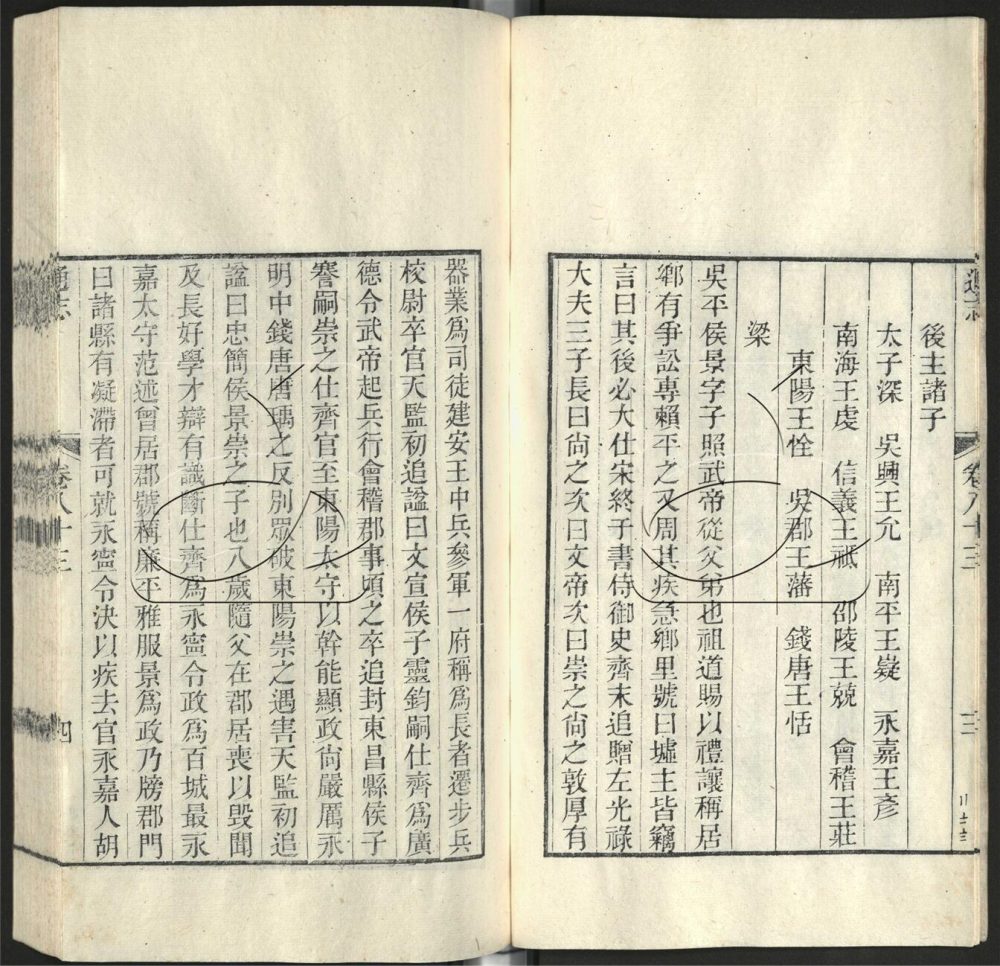 後主諸子
太子深 吳興王允 南平王嶷 永嘉王彥
南海王虔 信義王祗 邵陵王兢 會稽王莊
東陽王恮 吳郡王藩 錢唐王恬
梁
吳平侯景字子照武帝從父弟也祖道賜以禮讓稱居
鄉有爭訟專賴平之又周其疾急鄉里號曰墟主皆竊
言曰其後必大仕宋終于書侍御史齊末追贈左光祿
大夫三子長曰尙之次曰文帝次曰崇之尙之敦厚有
器業爲司徒建安王中兵參軍一府稱爲長者遷步兵
校尉卒官天監初追諡曰文宣侯子靈鈞嗣仕齊爲廣
德令武帝起兵行會稽郡事頃之卒追封東昌縣侯子
謇嗣崇之仕齊官至東陽太守以幹能顯政尙嚴厲永
明中錢唐唐㝢之反別眾破東陽崇之遇害天監初追
諡曰忠簡侯景崇之子也八歲隨父在郡居喪以毀聞
及長好學才辯有識斷仕齊爲永寧令政爲百城最永
嘉太守范述曾居郡號稱廉平雅服景爲政乃牓郡門
曰諸縣有凝滯者可就永寧令決以疾去官永嘉人胡
通志
卷八十三
三
通志
卷八十三
四